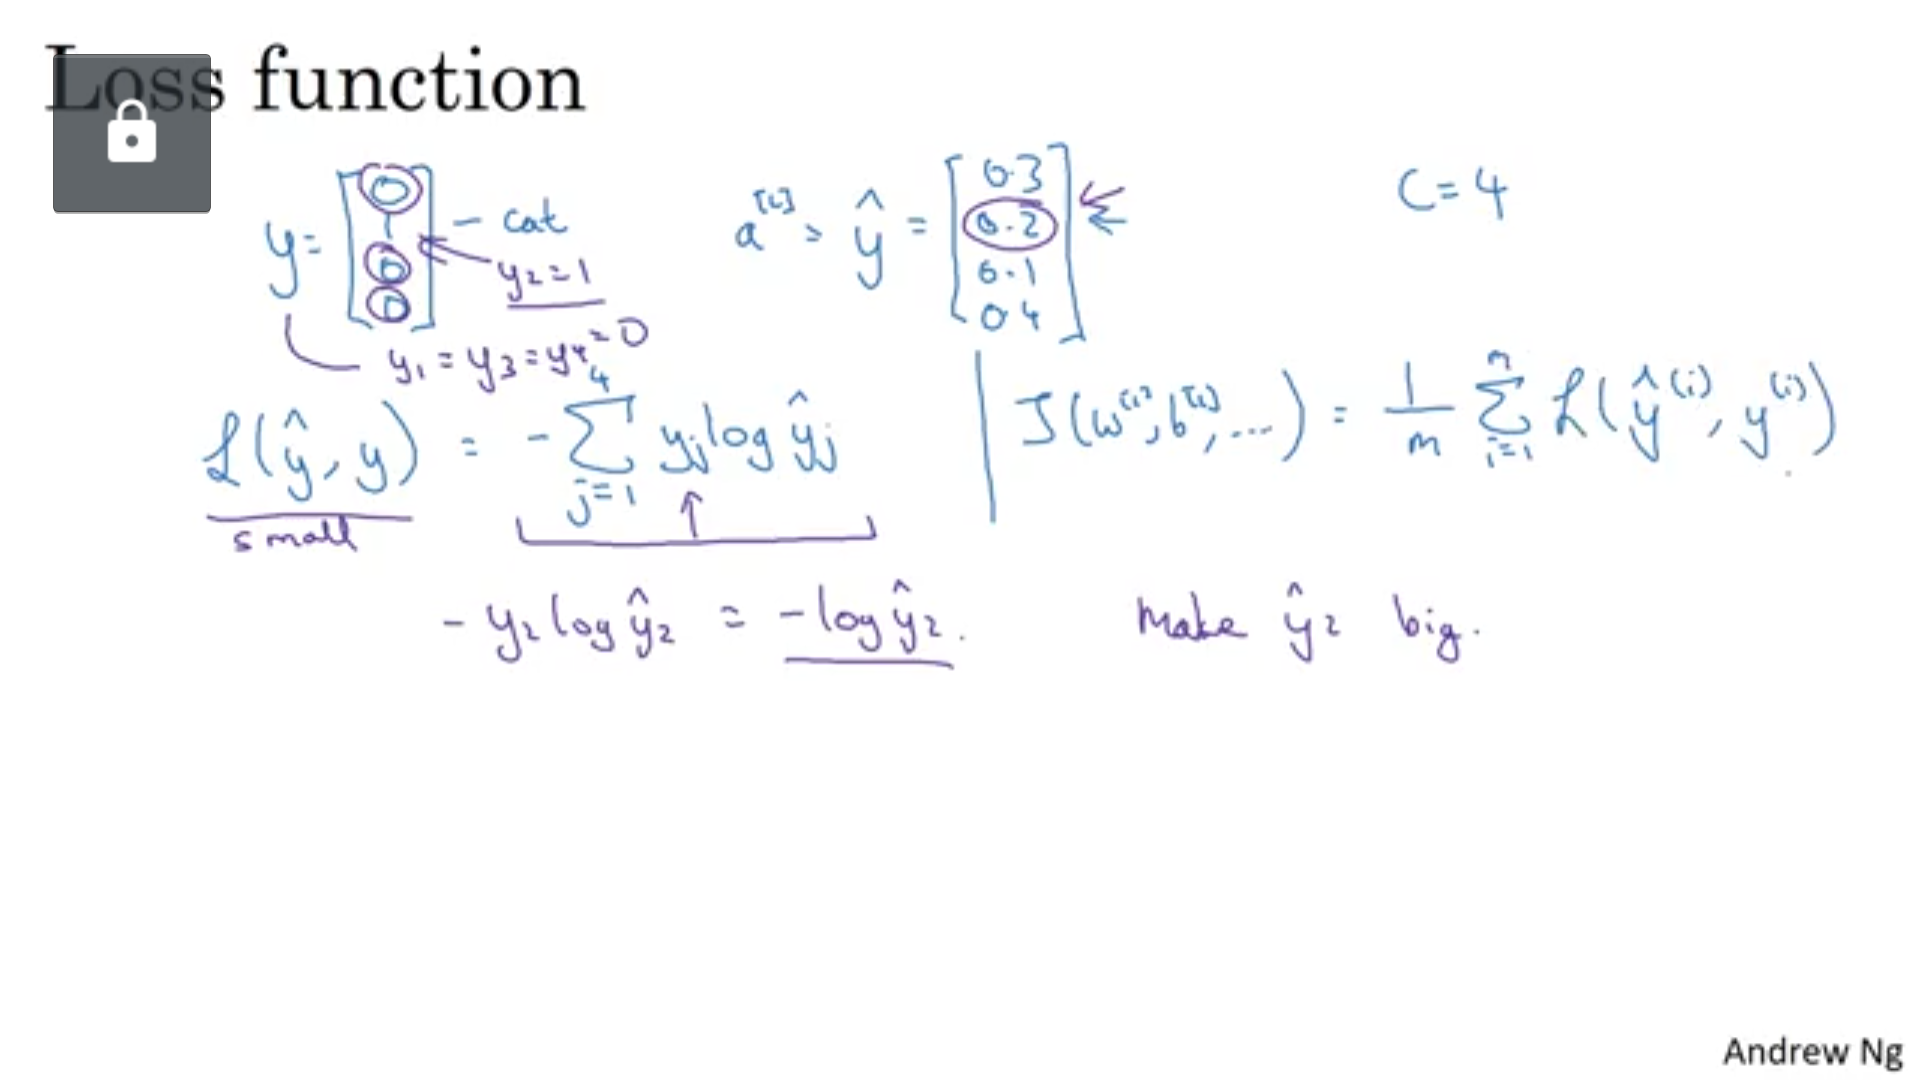 Loss function
y = [0 1 0 0] - cat
y₂ = 1
y₁ = y₃ = y₄ = 0
a^[L] = ŷ = [0.3 0.2 0.1 0.4]
C = 4
ℒ(ŷ, y) = - ∑_{j=1}^{4} y_j log ŷ_j
small
J(w^[1], b^[1], ...) = 1/m ∑_{i=1}^{m} ℒ(ŷ^(i), y^(i))
- y₂ log ŷ₂ = - log ŷ₂.
Make ŷ₂ big.
Andrew Ng